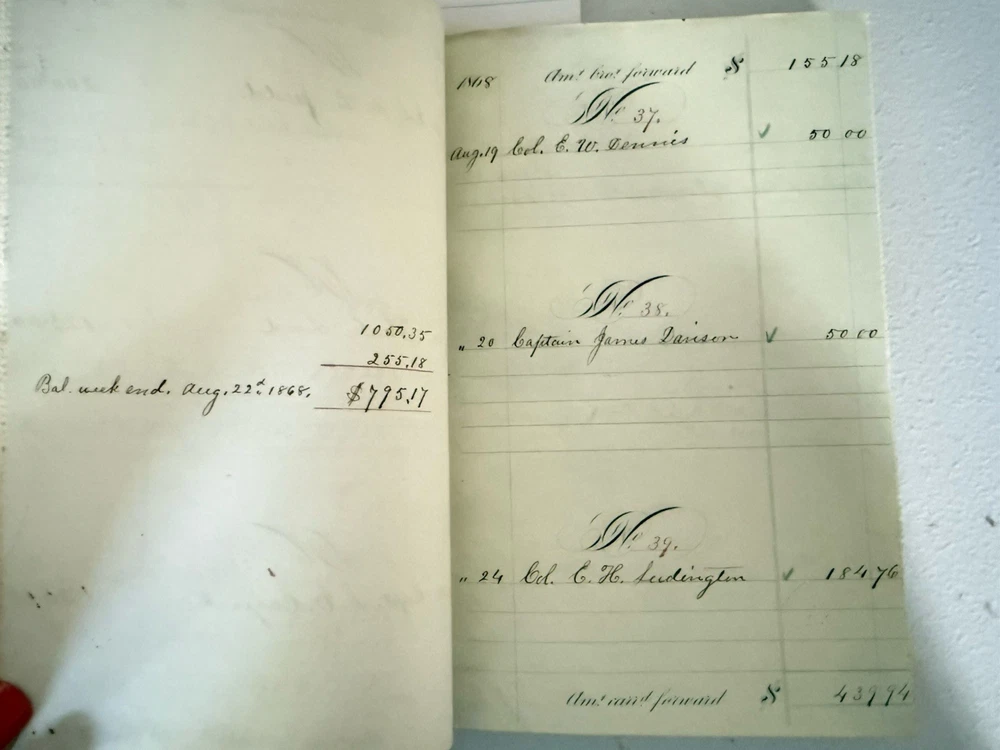 1050.35
255.18
Bal. week end. Aug. 22d. 1868. $795.17
1868 Amt. brot. forward $ 155 18
No. 37.
Aug. 19 Col. E. W. Dennis ✓ 50 00
No. 38.
" 20 Captain James Davison ✓ 50 00
No. 39.
" 24 Col. E. H. Ludington ✓ 184 76
Amt. carrd. forward $ 439 94